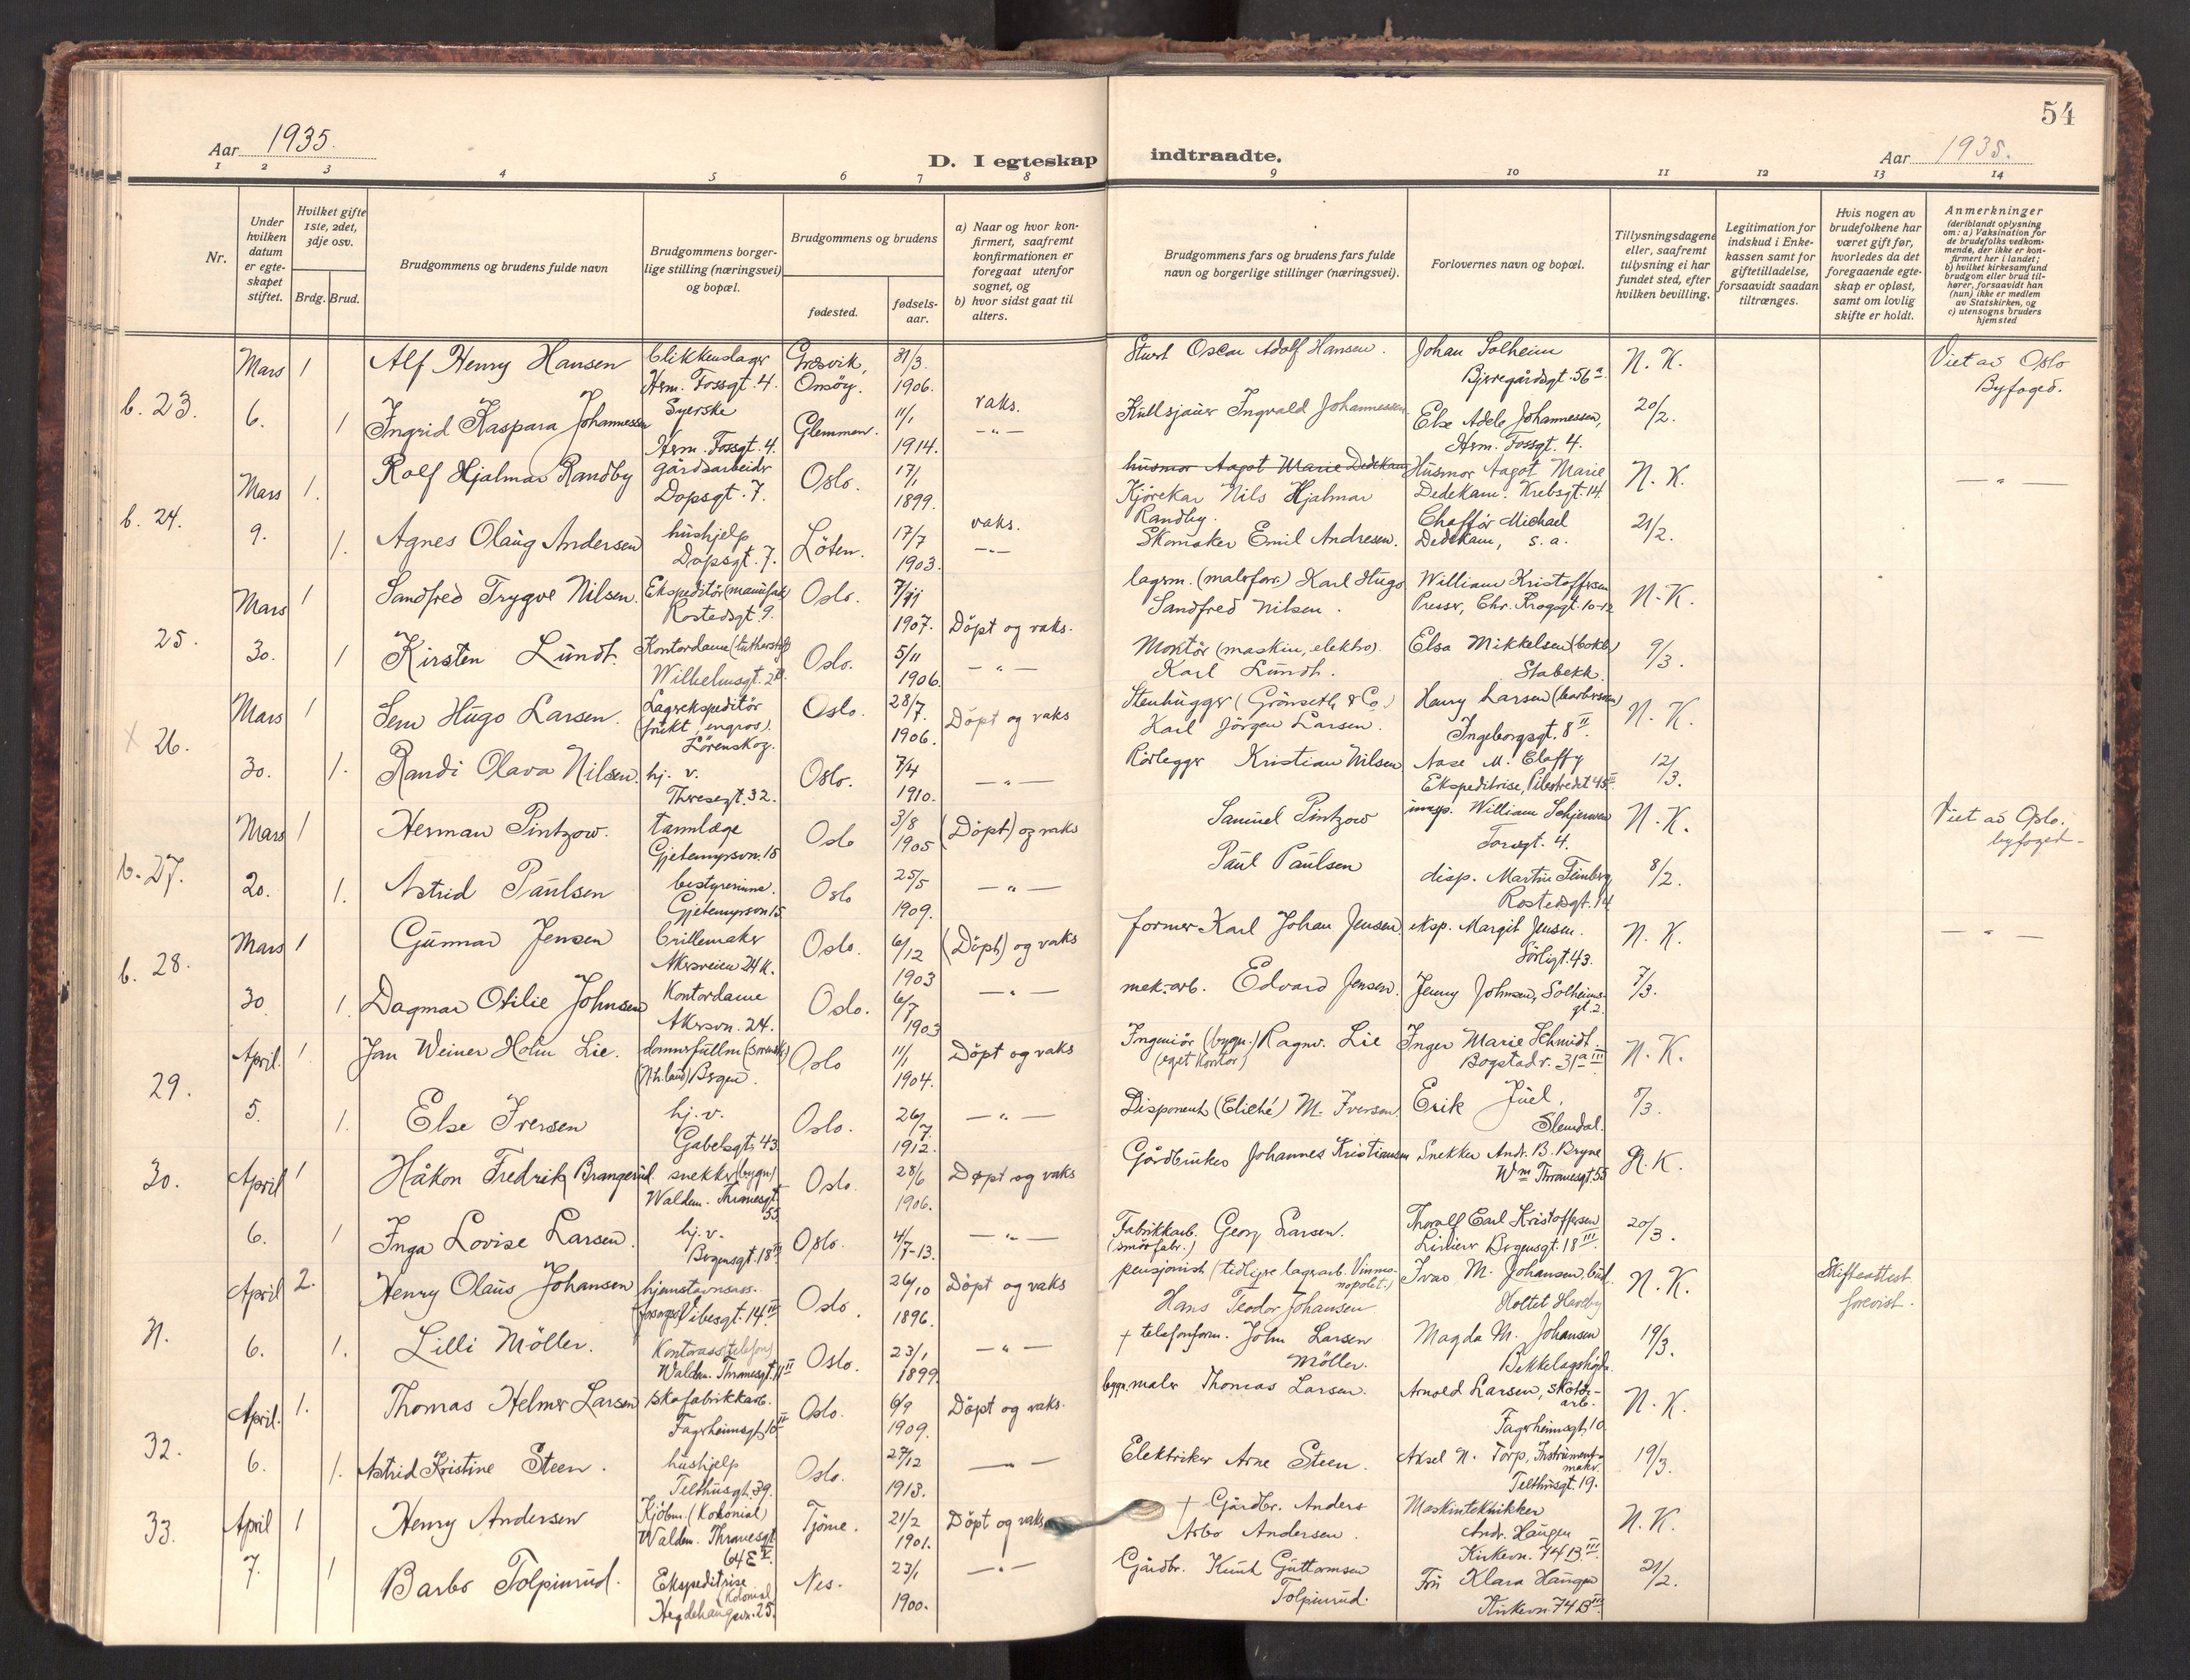 54
Aar 1935.
D. I egteskap indtraadte.
Aar 1935.
1 2 3 4 5 6 7 8 9 10 11 12 13 14
Nr.
Under hvilken datum er egte-skapet stiftet.
Hvilket gifte 1ste, 2det, 3dje osv.
Brdg. Brud.
Brudgommens og brudens fulde navn
Brudgommens borger-lige stilling (næringsvei) og bopæl.
Brudgommens og brudens
fødested.
fødsels-aar.
a) Naar og hvor kon-firmert, saafremt konfirmationen er foregaat utenfor sognet, og
b) hvor sidst gaat til alters.
Brudgommens fars og brudens fars fulde navn og borgerlige stillinger (næringsvei).
Forlovernes navn og bopæl.
Tillysningsdagene eller, saafremt tillysning ei har fundet sted, efter hvilken bevilling.
Legitimation for indskud i Enke-kassen samt for giftetilladelse, forsaavidt saadan tiltrænges.
Hvis nogen av brudefolkene har været gift før, hvorledes da det foregaaende egte-skap er opløst, samt om lovlig skifte er holdt.
Anmerkninger
(deriblandt oplysning om: a) Vaksination for de brudefolks vedkom-mende, der ikke er kon-firmert her i landet;
b) hvilket kirkesamfund brudgom eller brud til-hører, forsaavidt han (hun) ikke er medlem av Statskirken, og
c) utensogns bruders hjemsted
b. 23. Mars 6.
1 Alf Henry Hansen blikkenslager Herm. Fossgt. 4. Gressvik, Onsöy. 31/3. 1906. vaks. Oscar Adolf Hansen. Johan Solheim Bjerregårdsgt. 56a N. K. Viet av Oslo Byfoged.
1 Ingrid Kaspara Johannessen Syerske Herm. Fossgt. 4. Glemmen. 11/1 1914. - " - Kullsjauer Ingvald Johannessen Else Adele Johannessen, Herm. Fossgt. 4. 20/2.
b. 24. Mars 9.
1. Rolf Hjalmar Randby gårdsarbeider Dopsgt. 7. Oslo. 17/1 1899. vaks. husmor Aagot Marie Dedekam Kjörekar Nils Hjalmar Randby. Husmor Aagot Marie Dedekam. Krebsgt. 14 N. K. - " -
1. Agnes Olaug Andersen hushjelp Dopsgt. 7. Löten. 17/7 1903. - " - Skomaker Emil Andresen. Chafför Michael Dedekam, s. a. 21/2.
25. Mars 30.
1 Sandfred Trygve Nilsen. Ekspeditör (manufak) Rostedsgt. 9. Oslo. 1907. Döpt og vaks. lagerm. (malerforr.) Karl Hugo Sandfred Nilsen. William Kristoffersen Presser, Chr. Krogsgt. 10-12 N. K.
1 Kirsten Lundh. Kontordame Wilhelmsgt. Oslo. 5/11 1906. - " - Montör (maskin, elektro). Karl Lundh. Elsa Mikkelsen Stabekk. 9/3.
26. Mars 30.
1 Sem Hugo Larsen. Lagerekspeditör (frukt, engros). Lörenskog. Oslo. 28/7. 1906. Döpt og vaks Stenhugger (Grönseth & Co.) Karl Jörgen Larsen. Henry Larsen Ingeborgsgt. 8 II. N. K.
1. Randi Olava Nilsen. hj. v. Theresegt. 32. Oslo. 7/4 1910. - " - Rörlegger Kristian Nilsen Aase M. Ekspeditrise, Pilestredet 45 12/3.
b. 27. Mars 20.
1 Herman Pintzow. tannlæge Gjetemyrsvn. 15 Oslo 3/8 1905 (Döpt) og vaks Samuel Pintzow William Schjerven Torsgt. 4. N. K. Viet av Oslo. byfoged.
1. Astrid Paulsen bestyrerinne. Gjetemyrsvn 15. Oslo 25/5 1909. - " - Paul Paulsen disp. Martin Feinberg Rostedsgt. 14 8/2.
b. 28. Mars 30
1 Gunnar Jensen brillemaker Akersveien 24 K. Oslo. 6/12 1903 (Döpt) og vaks former Karl Johan Jensen eksp. Margit Jensen. Sörligt. 43. N. K. - " -
1. Dagmar Otilie Johnsen Kontordame Akersvn. 24. Oslo. 6/7 1903 - " - mek. arb. Edvard Jensen. Jenny Johnsen, Solheims-gt. 2. 7/3.
29. April 5.
1. Jan Weiner Holm Lie. dommerfullm. (N.h.land) Bergen. Oslo 11/1 1904. Döpt og vaks Ingeniör (bygn.) Ragnv. Lie (eget kontor) Inger Marie Schmidt. Bogstadv. 31a III N. K.
1. Else Iversen hj. v. Gabelsgt. 43. Oslo. 26/7. 1912. - " - Disponent (Cliché) M. Iversen Erik Juel, Slemdal. 8/3.
30. April 6.
1 Håkon Fredrik Brangerud. snekker (bygn.) Waldem. Thranesgt. 55 Oslo. 28/6 1906. Döpt og vaks Gårdbruker Johannes Kristiansen Snekker Andr. B. Bryne Wm Thranesgt. 55 N. K.
1 Inga Lovise Larsen. hj. v. Bergensgt. 18 III Oslo. 4/7-13. - " - Fabrikkarb. Georg Larsen. (smörfabr.) Thoralf Carl Kristoffersen Bergensgt. 18 III. 20/3.
31. April 6.
2. Henry Olaus Johansen Vibesgt. 14 III Oslo. 26/10 1896. Döpt og vaks pensjonist (tidligere lagerarb. Vinmo-nopolet.) Hans Teodor Johansen Ivar M. Johansen, bud. Holtet N. K. Skifteattest forevist.
1. Lilli Möller. Kontorass (telefon) Waldem. Thranesgt. 11 II Oslo. 23/1 1899. - " - † telefonform. John Larsen Möller. Magda M. Johansen Bekkelagshögda. 19/3.
32. April. 6.
1. Thomas Helmer Larsen skofabrikkarb. Fagerheimsgt. 10 II Oslo. 6/9 1909. Döpt og vaks. bygn. maler Thomas Larsen. Arnold Larsen, skotöi-arb. Fagerheimsgt. 10 N. K.
1. Astrid Kristine Steen. hushjelp Telthusgt. 39. Oslo. 27/12 1913. - " - Elektriker Arne Steen. Aksel N. Torp, Instrument-maker. Telthusgt. 19. 19/3.
33. April 7.
1 Henry Andersen Kjöbm. (Kolonial) Waldem. Thranesgt. 64 E V. Tjöme. 21/2 1901. Döpt og vaks † Gårdbr. Anders Arbo Andersen. Maskintekniker Andr. Haugen Kirkevn. 74 B III. N. K.
1 Barbo Tolpinrud. Ekspeditrise (Kolonial) Hegdehaugsvn. 25. Nes. 23/1 1900. - " - Gårdbr. Knut Guttormsen Tolpinrud. Fru Klara Haugen Kirkevn. 74 B III. 21/2.